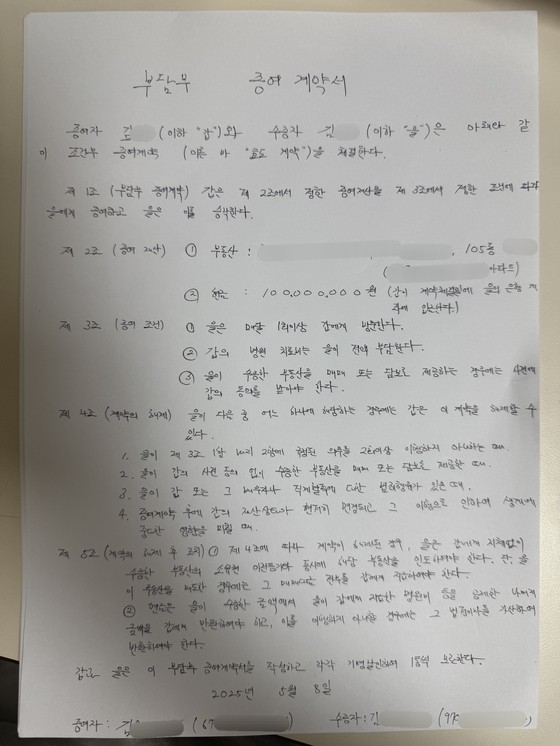 부담부 증여 계약서
증여자 김 (이하 "갑")와 수증자 김 (이하 "을")은 아래와 같
이 조건부 증여계약 (이른 바 "효도 계약")을 체결한다.
제 1조 (부담부 증여계약) 갑은 제 2조에서 정한 증여재산을 제 3조에서 정한 조건에 따라
을에게 증여하고 을은 이를 승낙한다.
제 2조 (증여 재산) ① 부동산 : , 105동
( 아파트)
② 현금 : 100,000,000원 (갑이 계약체결일에 을의 은행 계
좌에 입금한다.)
제 3조 (증여 조건) ① 을은 매달 1회이상 갑에게 방문한다.
② 갑의 병원 치료비는 을이 전액 부담한다.
③ 을이 수증한 부동산을 매매 또는 담보로 제공하는 경우에는 사전에
갑의 동의를 받아야 한다.
제 4조 (계약의 해제) 을이 다음 중 어느 하나에 해당하는 경우에는 갑은 이 계약을 해제할 수
있다.
1. 을이 제 3조 1항 내지 2항에 규정된 의무를 2회이상 이행하지 아니하는 때.
2. 을이 갑의 사전 동의 없이 수증한 부동산을 매매 또는 담보로 제공한 때.
3. 을이 갑 또는 그 배우자나 직계혈족에 대한 범죄행위가 있은 때.
4. 증여계약 후에 갑의 재산상태가 현저히 변경되고 그 이행으로 인하여 생계에
중대한 영향을 미칠 때.
제 5조 (계약의 해제 후 조치) ① 제 4조에 따라 계약이 해제된 경우, 을은 갑에게 지체없이
수증한 부동산의 소유권 이전등기와 동시에 해당 부동산을 인도하여야 한다. 단, 을
이 부동산을 매도한 경우에는 그 매매대금 전부를 갑에게 지급하여야 한다.
② 현금은 을이 수증한 금액에서 을이 갑에게 지급한 병원비 등을 공제한 나머지
금액을 갑에게 반환하여야 하고, 이를 이행하지 아니한 경우에는 그 법정이자를 가산하여
반환하여야 한다.
갑과 을은 이 부담부 증여계약서를 작성하고 각각 기명날인하여 1통씩 보관한다.
2025년 5월 8일
증여자 : 김 (67 ) 수증자 : 김 (97